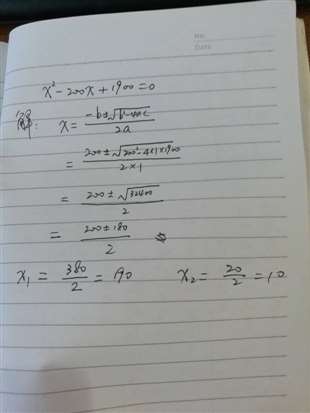 No.
Date
x² - 200x + 1900 = 0
解: x = (-b ± √(b² - 4ac)) / 2a
= (200 ± √(200² - 4×1×1900)) / (2×1)
= (200 ± √32400) / 2
= (200 ± 180) / 2
x₁ = 380/2 = 190 x₂ = 20/2 = 10